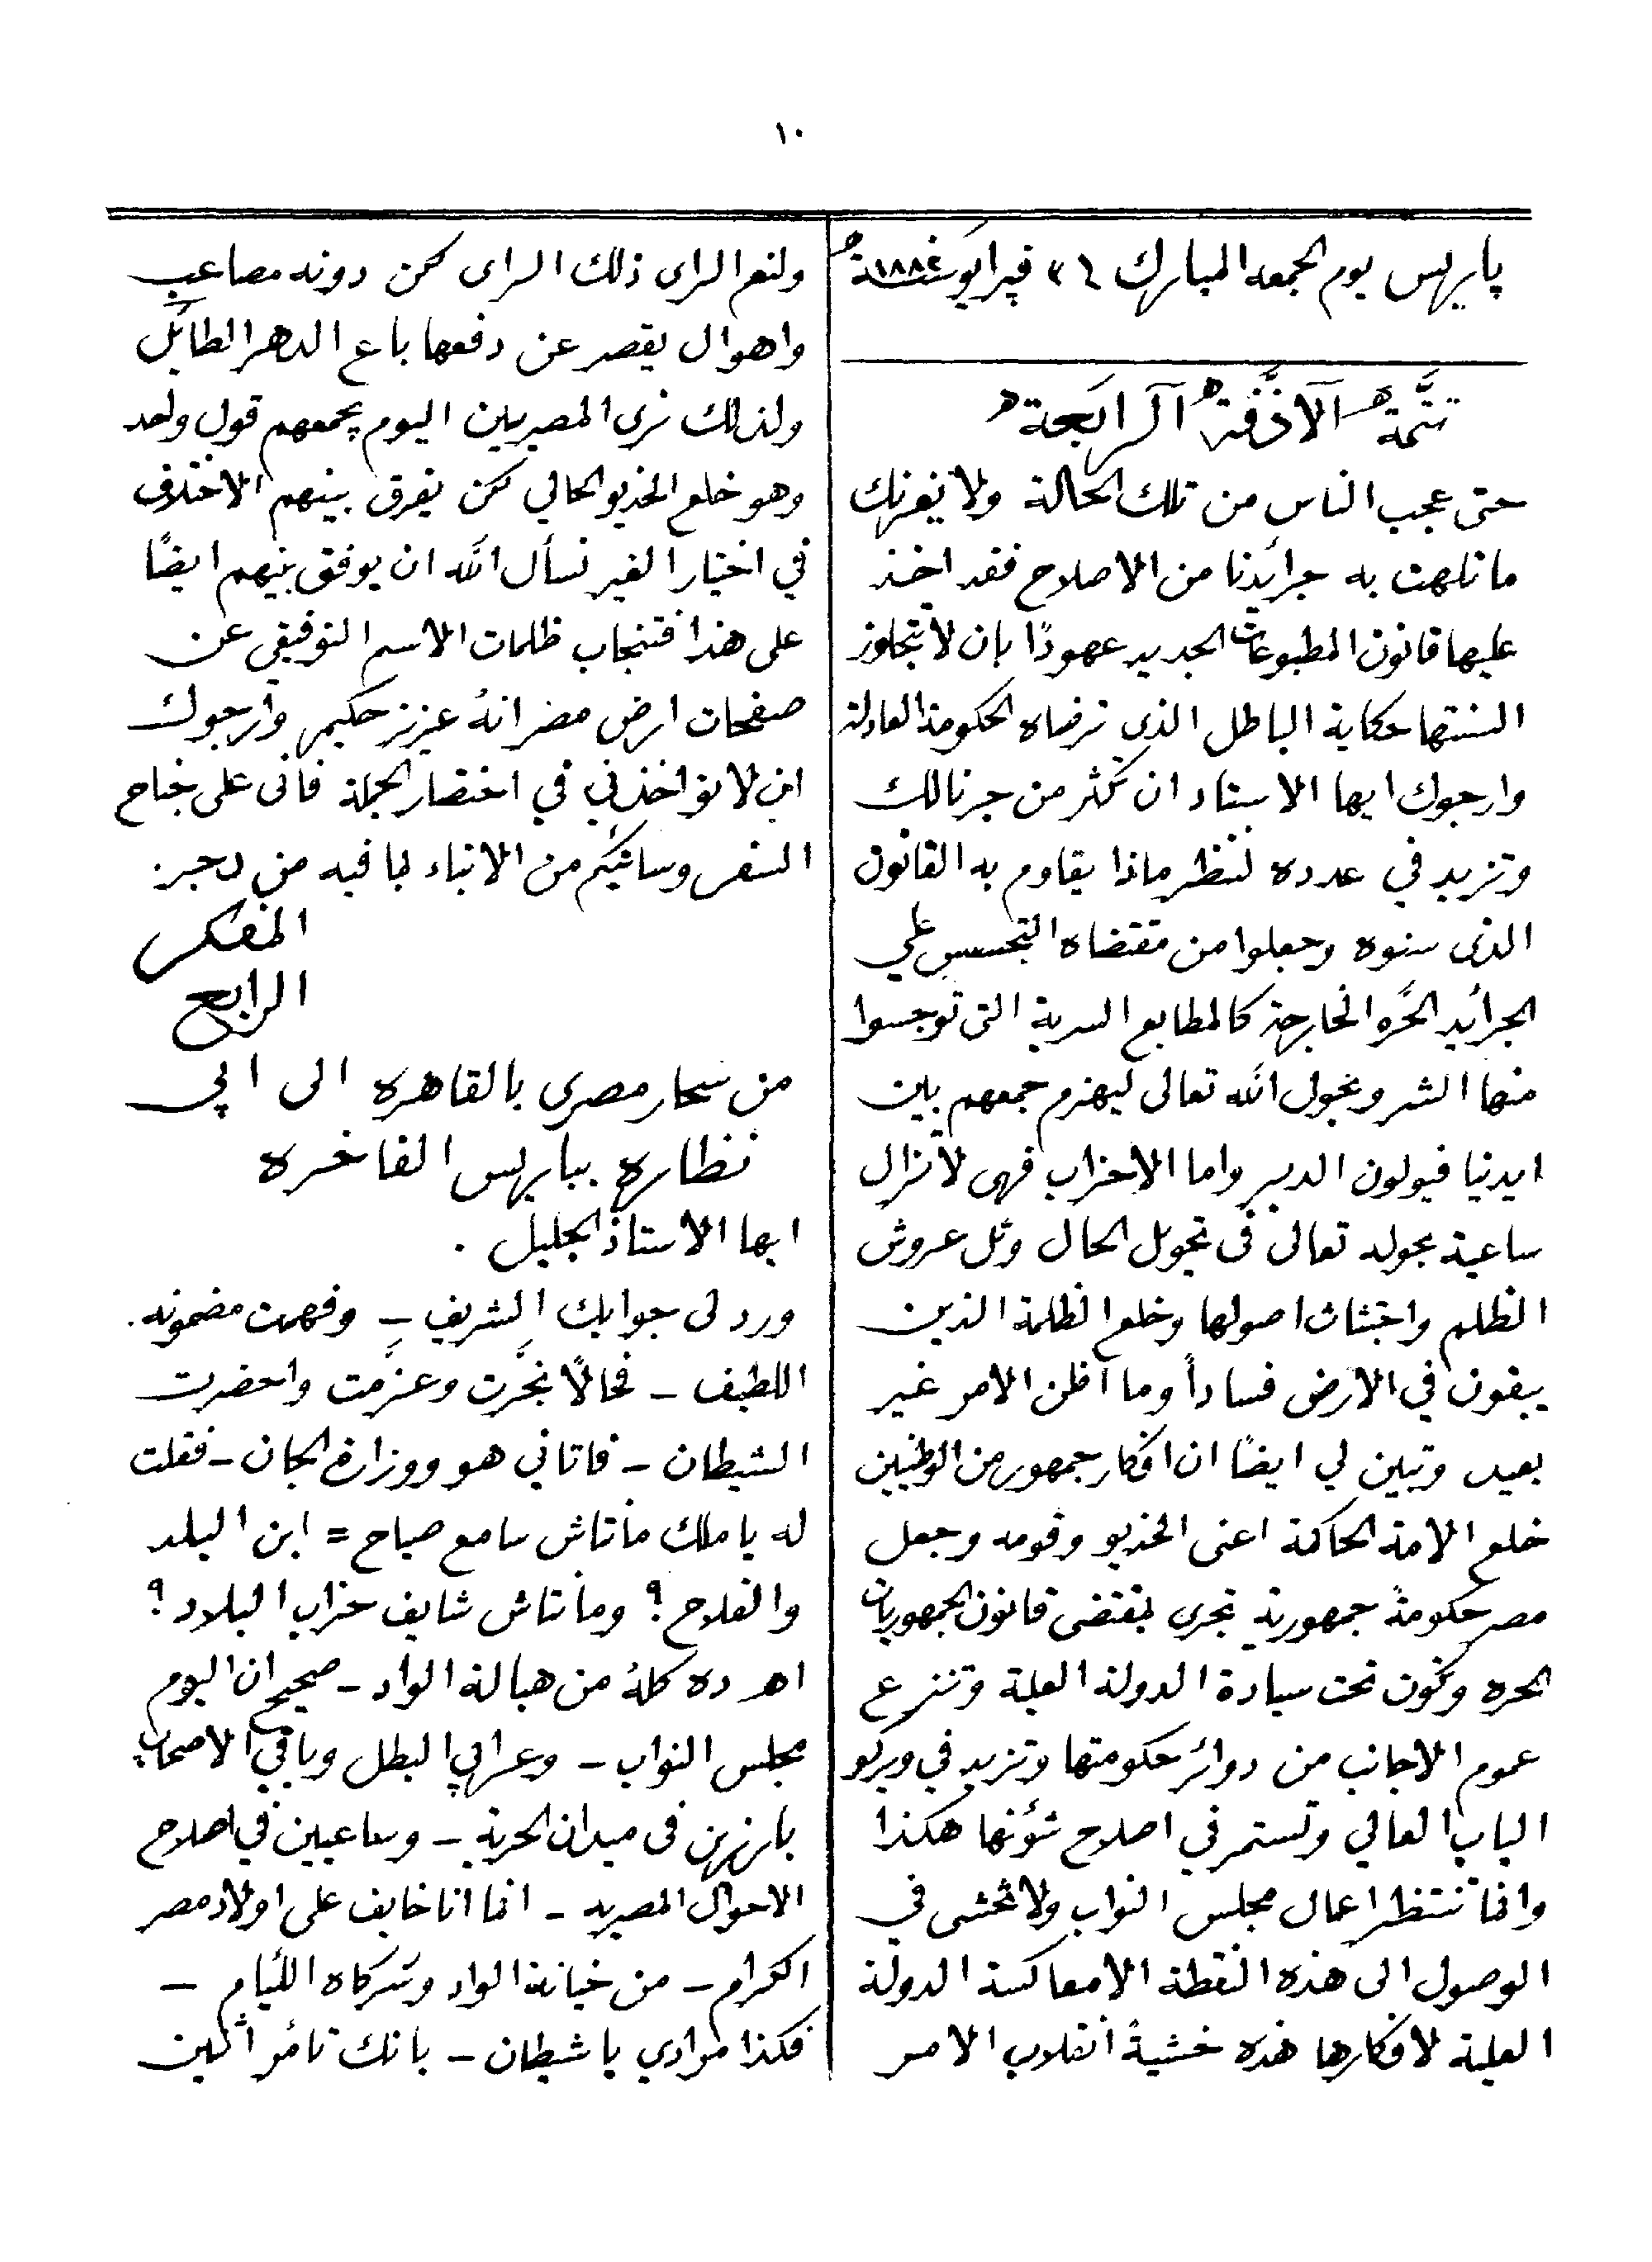 ١٠
پاريس يوم الجمعه المبارك ٢٤ فبراير سنة ١٨٨٢
تتمة الآذفة الرابعة
حتى عجب الناس من تلك الحالة ولا يغرنك
ما تلهت به جرائدنا من الاصلاح فقد اخذ
عليها قانون المطبوعات الجديد عهودًا بان لا تتجاوز
السنتها حكاية الباطل الذي ترضاه الحكومة العادلة
وارجوك ايها الاستاد ان تكثر من جرنالك
وتزيد في عدده لننظر ماذا يقاوم به القانون
الذى سنوه وجعلوا من مقتضاه التجسس علي
الجرائد الحرّه الخارجة كالمطابع السرية التى توجسوا
منها الشر وبحول الله تعالى ليهزم جمعهم بين
ايدنيا فيولون الدبر واما الاحزاب فهى لا تزال
ساعية بحوله تعالى فى تحويل الحال وثل عروش
الظلم واجتثاث اصولها وخلع الظلمة الذين
يبغون في الارض فسادًا وما اظن الامر غير
بعيد وتبين لي ايضًا ان افكار جمهور من الوطنيين
خلع الامة الحاكمة اعنى الخديو وقومه وجعل
مصر حكومةً جمهورية تجرى بمقتضى قانون الجمهوريات
الحره وتكون تحت سيادة الدولة العلية وتنزع
عموم الاجانب من دوائر حكومتها وتزيد في ويركو
الباب العالي وتستمر في اصلاح شؤنها هكذا
وانما ننتظر اعمال مجلس النواب ولا نخشى في
الوصول الى هذه النقطة الا معاكسة الدولة
العلية لافكارها هذه خشيةً انقلاب الامر
ولنعم الراى ذلك الراى لكن دونه مصاعب
واهوال يقصر عن دفعها باع الدهر الطائل
ولذلك نرى المصريين اليوم يجمعهم قول واحد
وهو خلع الخديو الحالي لكن يفرق بينهم الاختلاف
في اختيار الغير نسأل الله ان يوفق بينهم ايضًا
على هذا فتنجاب ظلمات الاسم التوفيقي عن
صفحات ارض مصر انهُ عزيز حكيم وارجوك
ان لا تواخذني في اختصار الجملة فانى على جناح
السفر وسائيكم من الانباء بما فيه مزدجر.
المفكر
الرابع
من سحار مصرى بالقاهره الى ابي
نظاره بباريس الفاخره
ايها الأستاذ الجليل .
ورد لى جوابك الشريف – وفهمت مضمونه.
اللطيف – فحالاً بخّرت وعزّمت واحضرت
الشيطان – فاتاني هو ووزارة الجان – فقلت
له يا ملك مانتاش سامع صياح = ابن البلد
والفلاح ؟ ومانتاش شايف خراب البلاد ؟
اهـ ده كلهُ من هبالة الواد – صحيح ان اليوم
مجلس النواب – وعرابي البطل وباقي الاصحاب
بارزين فى ميدان الحرية – وساعيين في اصلاح
الاحوال المصريه – انما انا خايف على اولاد مصر
الكرام – من خيانة الواد وشركاه اللئام –
فكذا مرادي يا شيطان – بانك تأمر اثنين